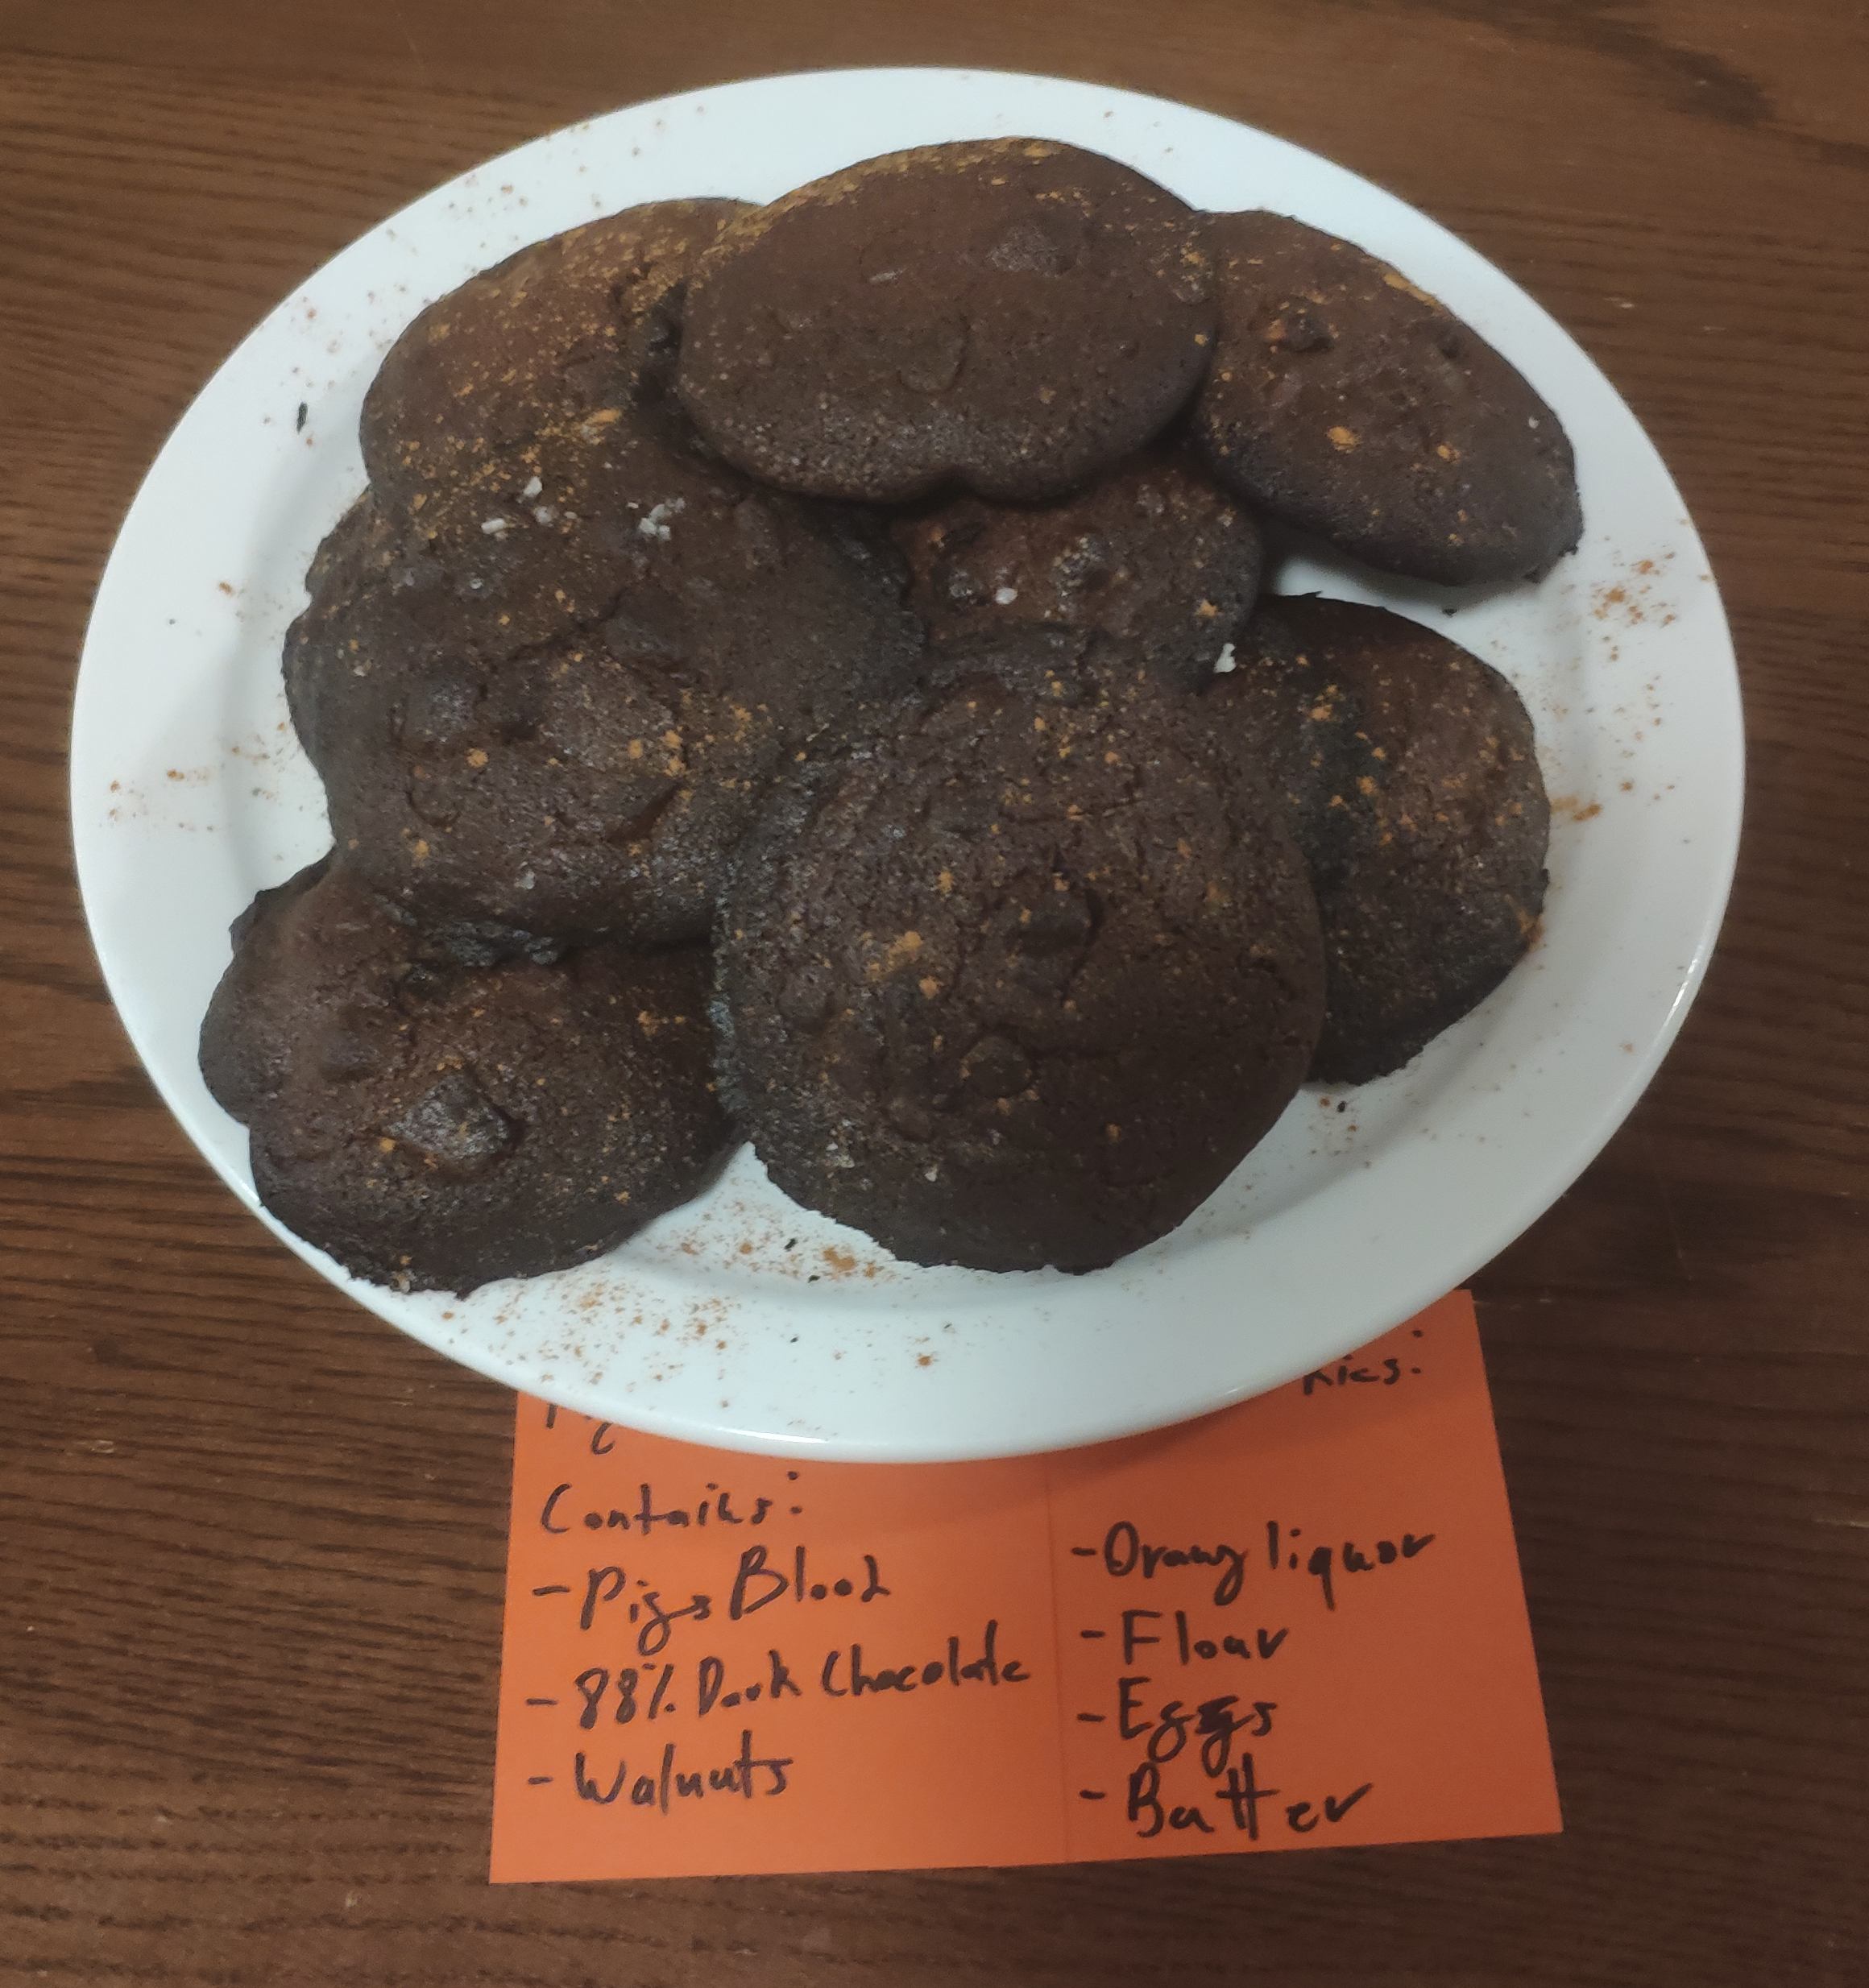 kies:
Contains:
- Pigs Blood
- 88% Dark Chocolate
- Walnuts
- Orang liquor
- Flour
- Eggs
- Butter